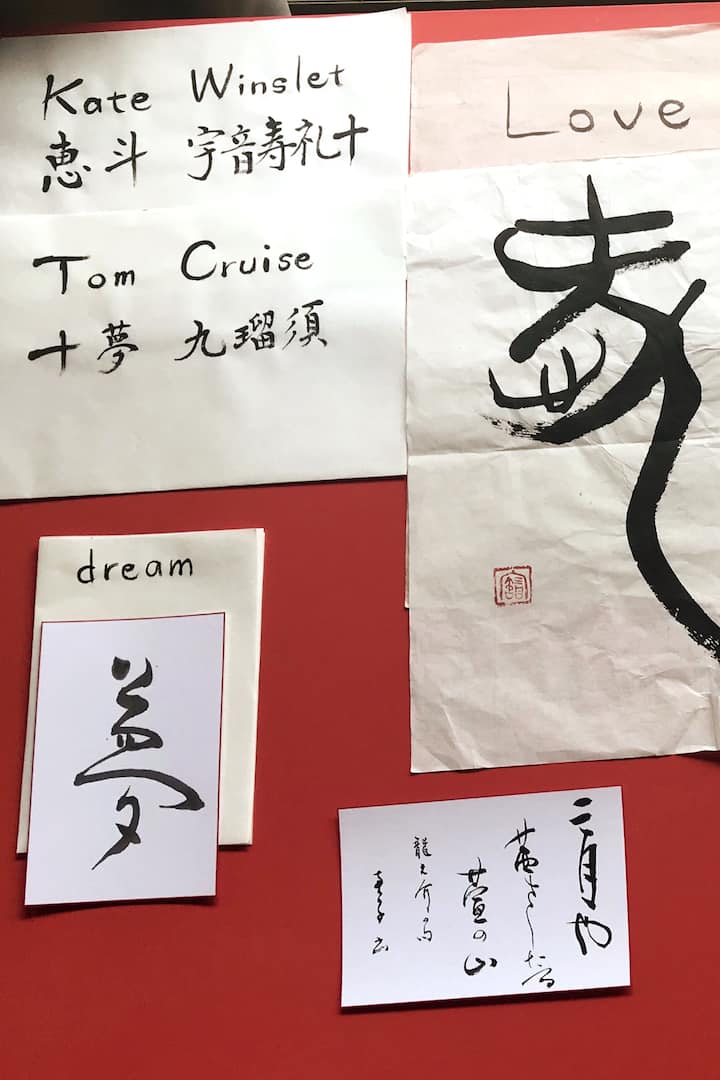 Kate Winslet
恵斗 宇音壽礼十
Tom Cruise
十夢 九瑠須
Love
愛
dream
夢
二月や
茜さしたる
萱の山
龍之介の句